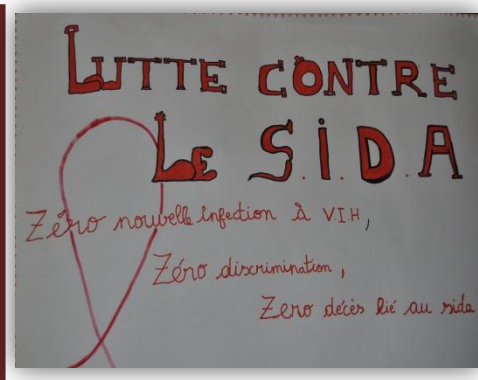 LUTTE CONTRE
LE S.I.D.A
Zéro nouvelle infection à V.I.H,
Zéro discrimination,
Zero décès lié au sida